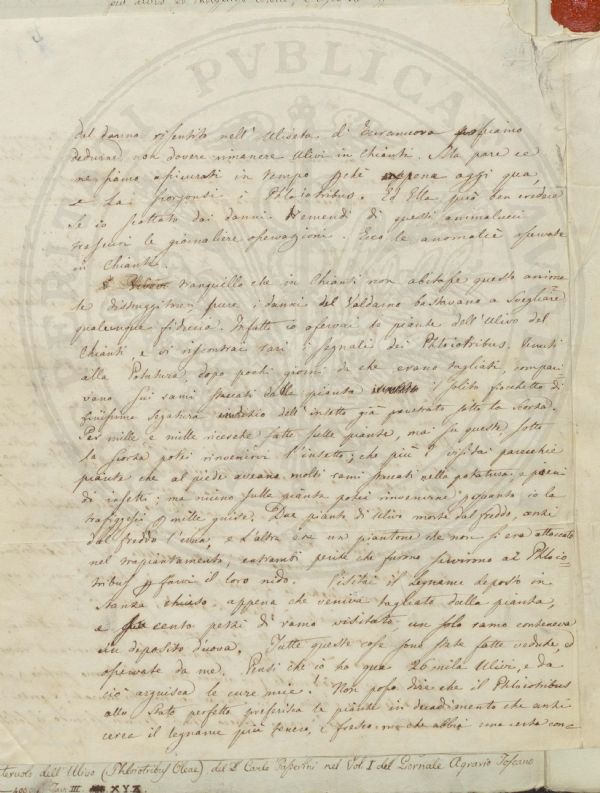 PVBLICA
dal danno risentito nell' Uliveta di Terranuova possiamo
dedurne non dovere rimanere Ulivi in Chianti. Ma pare ce
ne siamo assicurati in tempo appena oggi qua
e la scorgonsi i Phloiotribus. Ed Ella può ben credere
se io scottato dai danni tremendi di questi animalucci
trascuri le giornaliere osservazioni. Ecco le anomalie osservate
in Chianti.
tranquillo che in Chianti non abitasse questo anima
le distruggitore, pure i danni del Valdarno bastavano a svegliare
qualunque fiducia. Infatti io osservai le piante dell' Ulivo del
Chianti, e vi riscontrai rari i segnali dei Phloiotribus. Venuti
alla Potatura dopo pochi giorni da che erano tagliati, compari
vano sui rami staccati dalla pianta il solito fiocchetto di
finissima segatura indizio dell' insetto già penetrato sotto la scorza.
Per mille e mille ricerche fatte sulle piante, mai su queste sotto
la scorza potei rinvenirvi l' insetto; che più? visitai parecchie
piante che al piede aveano molti rami staccati nella potatura, e pieni
di insetti: ma niuno sulla pianta potei rinvenirne per quanto io la
trafiggessi per mille guise. Due piante di Ulivo morte dal freddo, anzi
dal freddo l'una, e l'altra era un piantone che non si era attaccato
nel trapiantamento, entrambi perite che furono servirono ai Phloio=
tribus per farvi il loro nido. Visitai il legname deposto in
stanza chiuso, appena che veniva tagliato dalla pianta,
e cento pezzi di ramo visitati, un solo ramo conteneva
un deposito d'uova. Tutte queste cose sono state fatte vedute, ed
osservate da me. Pensi che io ho qua 26 mila Ulivi, e da
ciò arguisca le cure mie! Non posso dire che il Phloiotribus
allo stato perfetto preferisca le piante in decadimento che anzi
cerca il legname più tenero, e fresco ma che abbia una certa con=
dell' Ulivo (Phloiotribus Oleae) del D. Carlo Passerini nel Vol. I del Giornale Agrario Toscano
III XYZ.